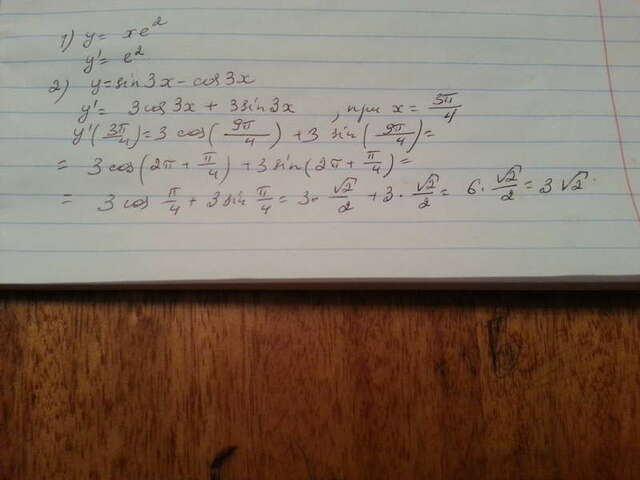 1) y = xe²
y' = e²
2) y = sin3x - cos3x
y' = 3cos3x + 3sin3x , при x = 5π/4
y'(3π/4) = 3 cos(9π/4) + 3 sin(9π/4) =
= 3cos(2π + π/4) + 3sin(2π + π/4) =
= 3cos π/4 + 3sin π/4 = 3 · √2/2 + 3 · √2/2 = 6 · √2/2 = 3√2.